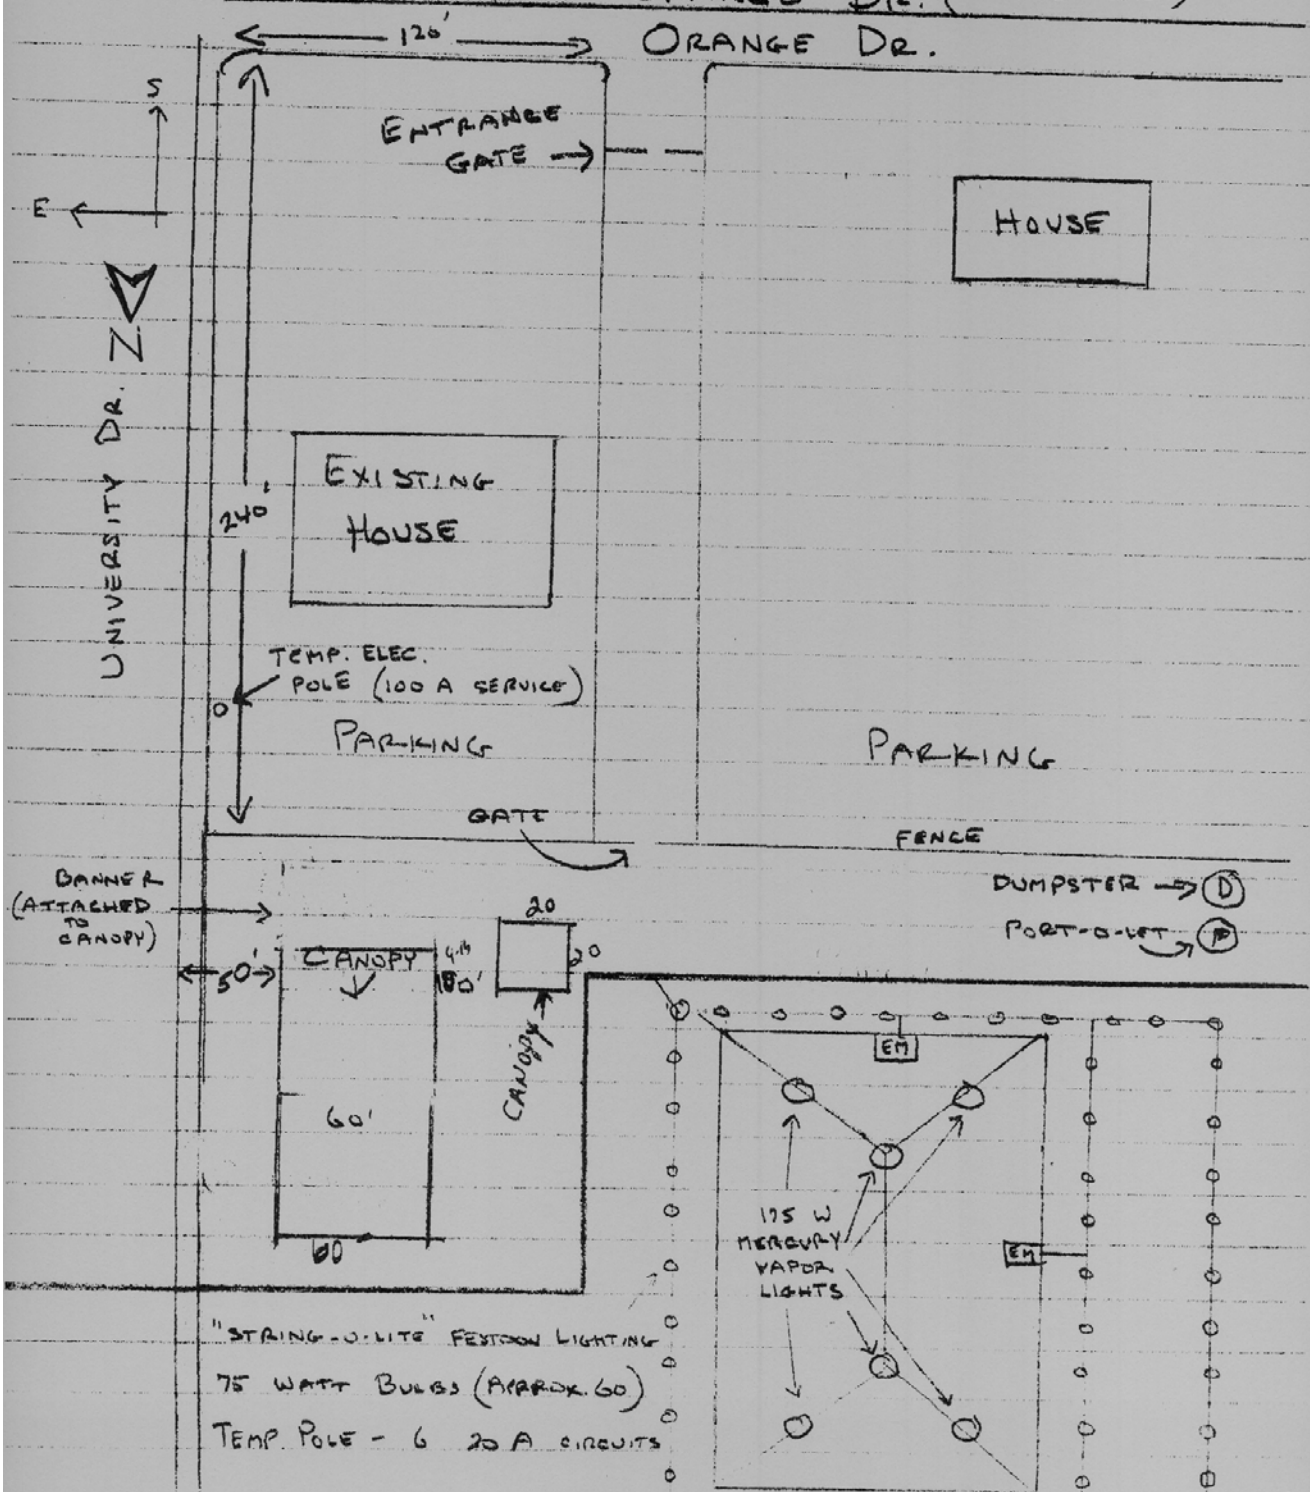 DR. (
ORANGE DR.
120'
S
E
N
UNIVERSITY DR.
ENTRANCE
GATE
HOUSE
EXISTING
HOUSE
240'
TEMP. ELEC.
POLE (100 A SERVICE)
PARKING
PARKING
GATE
FENCE
BANNER
(ATTACHED
TO
CANOPY)
DUMPSTER
D
PORT-O-LET
P
50'
CANOPY
20
20
CANOPY
60'
60
EM
EM
175 W
MERCURY
VAPOR
LIGHTS
"STRING-O-LITE" FESTOON LIGHTING
75 WATT BULBS (APPROX. 60)
TEMP. POLE - 6 20 A CIRCUITS